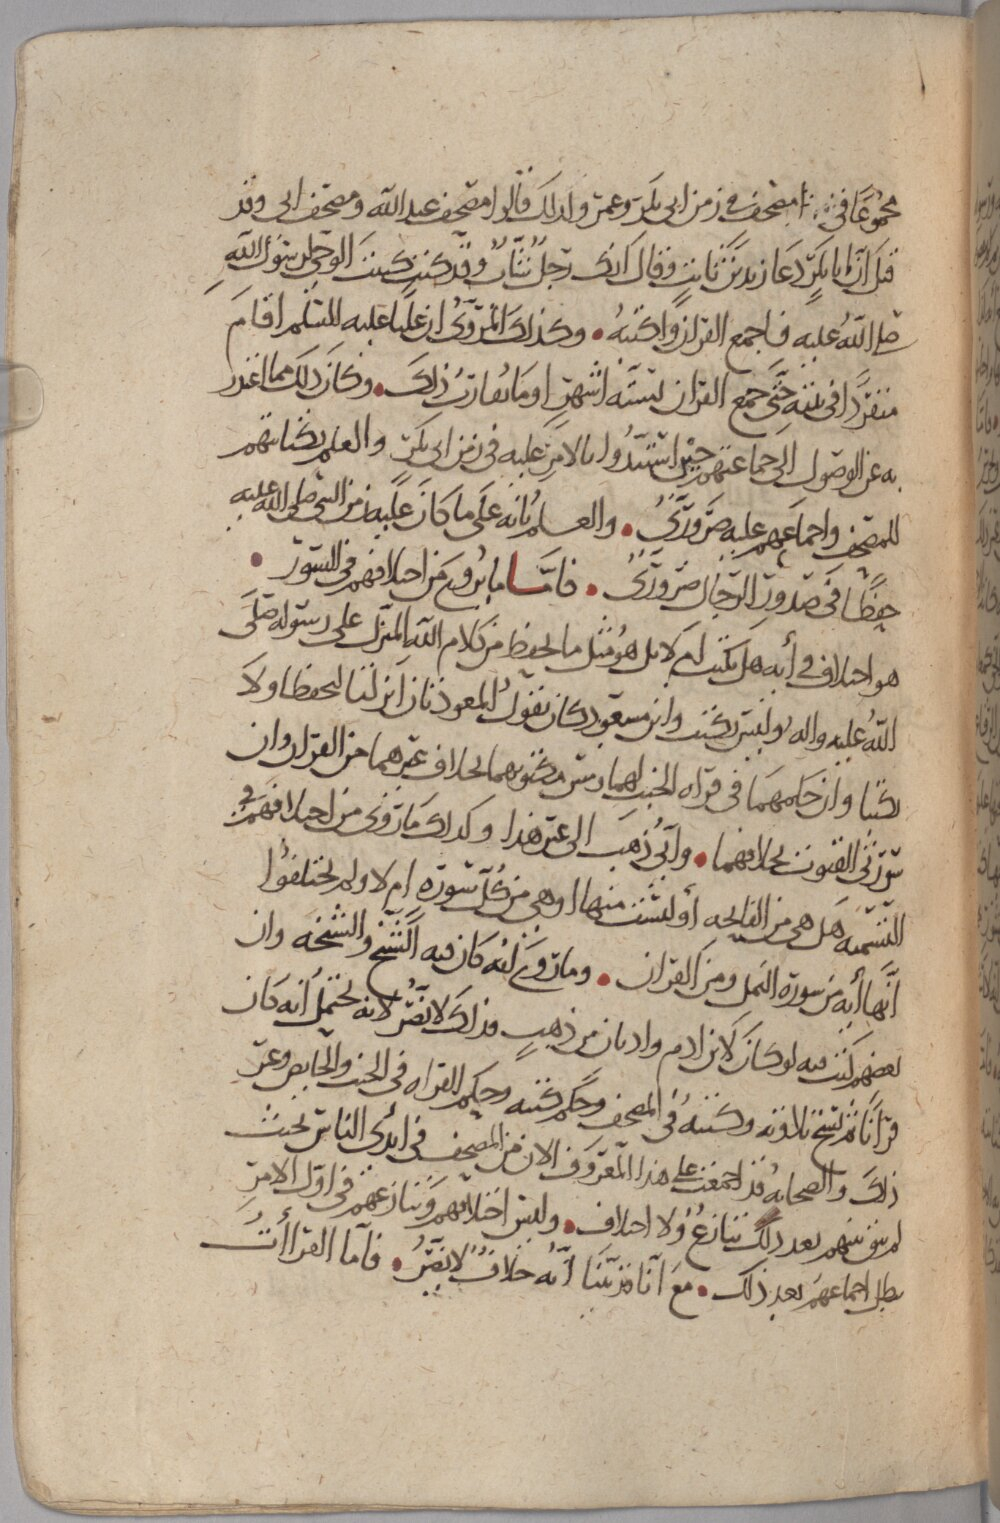 مجموعا في مصحف في زمن ابي بكر وعمر ولذلك قالوا مصحف عبد الله ومصحف ابي وقد
قيل ان ابا بكر دعا زيد بن ثابت وقال انك رجل شاب وقد كنت كتبت الوحي لرسول الله
صلى الله عليه فاجمع القران واكتبه • وكذلك المروي ان عليا عليه السلم اقام
منفردا في بيته حتى جمع القران لستة اشهر او ما يقارب ذلك • وكان ذلك مما اعتذر
به عن الوصول الى جماعتهم حين استبدوا بالامر عليه في زمن ابي بكر والعلم بكتابتهم
للمصحف واجماعهم عليه ضروري • والعلم بانه على ما كان عليه زمن النبي صلى الله عليه
حفظا في صدور الرجال ضروري • فاما ما يروى من اختلافهم في السور •
هو اختلاف في أيه هل يكتب ام لا بل هو مثل ما يحفظ من كلام الله المنزل على رسوله صلى
الله عليه واله وليس يكتب وابن مسعود كان يقول المعوذتان انزلتا لتحفظا ولا
يكتبا وان حكمهما في قراه الجنب لهما ومس مكتوبهما بخلاف غيرهما من القران وان
سورتي القنوت بخلافهما • وابي ذهب الى غير هذا وكذلك ما روي من اختلافهم في
التسميه هل هي من الفاتحه أو ليست منها او هي من كل سوره ام لا ولم يختلفوا
انها أيه من سورة النمل ومن القران • وما روي انه كان فيه الشيخ والشيخه وان
بعضهم كتب فيه لو كان لابن ادم واديان من ذهب فذاك لا يضر لانه يحتمل أنه كان
قرأنا ثم نسخ تلاوته وكتبته في المصحف وحكم كتبه وحكم القراه في الجنب والحايض وغير
ذلك والصحابه قد اجمعت على هذا المعروف الان من المصحف في ايدي الناس بحيث
لم يبق بينهم بعد ذلك تنازع ولا اختلاف • وليس اختلافهم وتنازعهم في اول الامر
يبطل اجماعهم بعد ذلك • مع أنا قد بينا أنه خلاف لا يضر • فأما القراأت